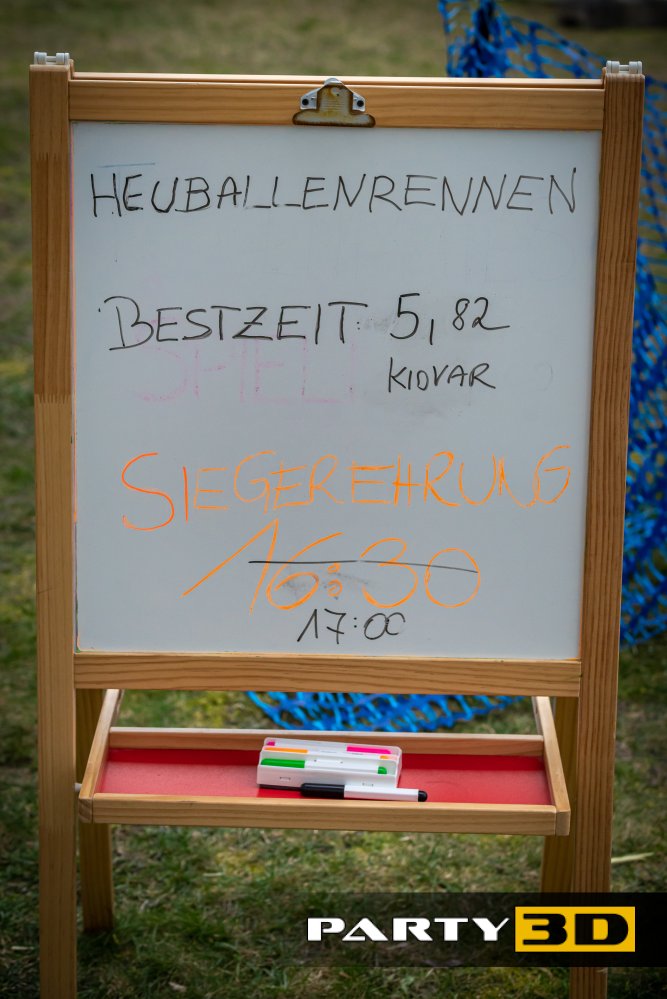 HEUBALLENRENNEN
BESTZEIT: 5,82
KIDVAR
SIEGEREHRUNG
16:30
17:00
PARTY 3D